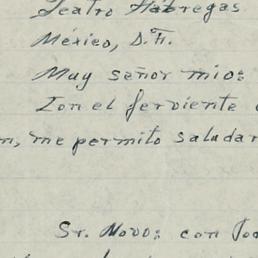 Teatro Fábregas
México, D.F.
Muy señor mío:
Con el ferviente
me permito saludar
Sr. Novo: con